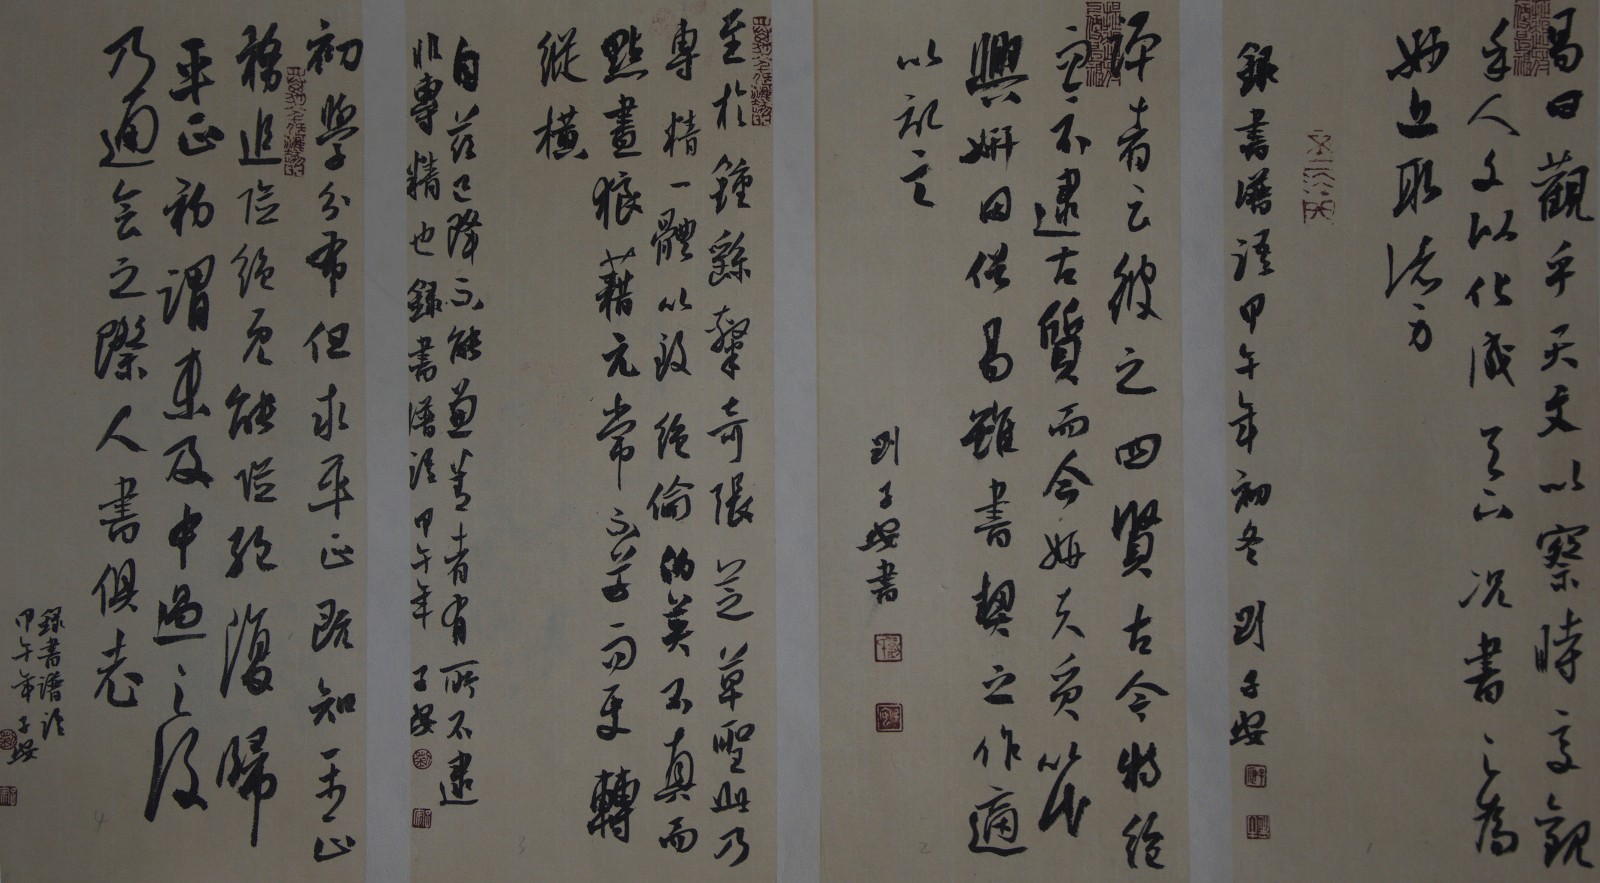 易曰觀乎天文以察時變觀
乎人文以化成天下況書之為
妙近取諸身
錄書譜語甲午年初冬劉子安
評者云彼之四賢古今特絕
而今不逮古質而今妍夫質以代
興妍因俗易雖書契之作適
以記言
劉子安書
至於鍾繇隸奇張芝草聖此乃
專精一體以致絕倫伯英不真而
點畫狼藉元常不草而使轉
縱橫
自茲已降不能兼善者有所不逮
非專精也錄書譜語甲午年子安
初學分布但求平正既知平正
務追險絕既能險絕復歸
平正初謂未及中過之後
乃通會之際人書俱老
錄書譜語
甲午年子安